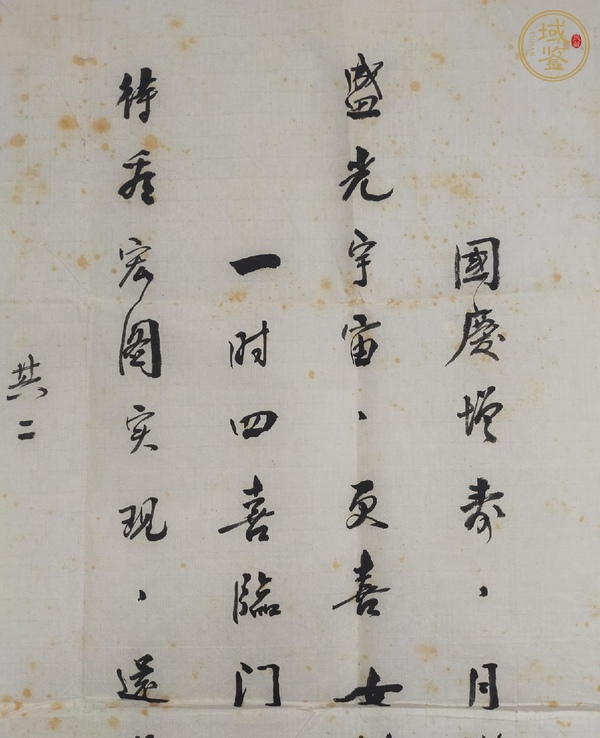 國慶增寿、月
盛光宇宙、更喜女
一时四喜臨门
待看宏图实现、还
其二
域鉴